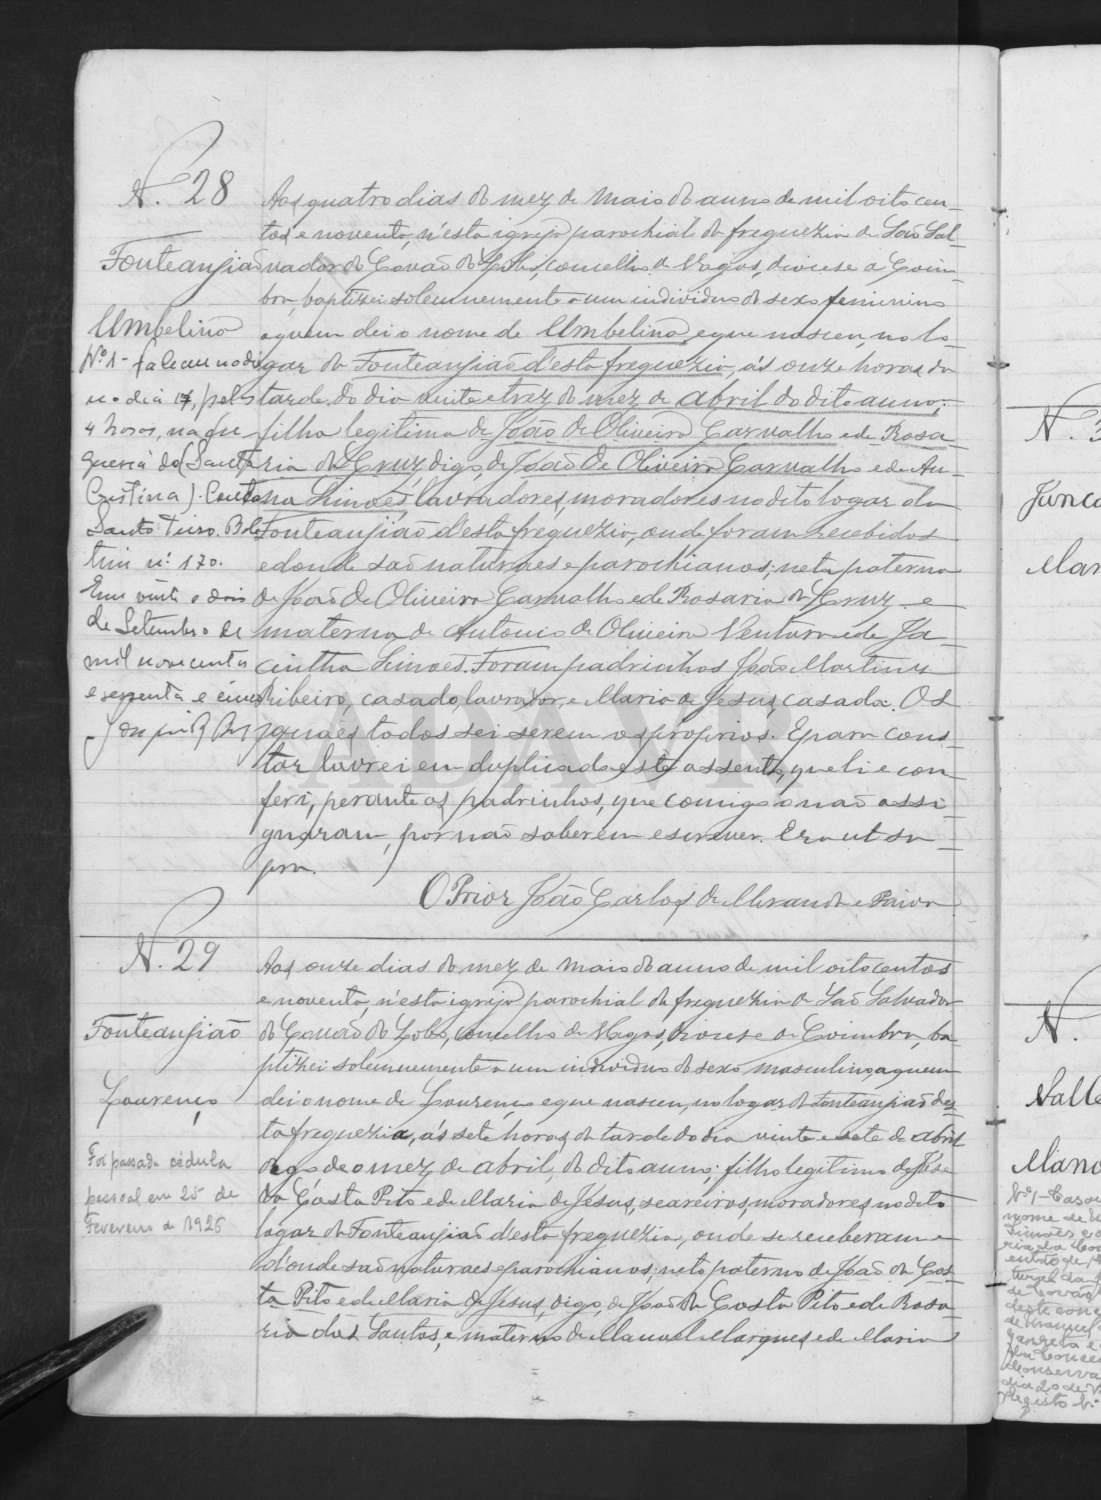 N. 28
Fonteanjião
Umbelina
Nº 1 - faleceu no dia
no dia 17, pelas
4 horas, na fre-
guesia do (Santa
Cristina). Couto
Santo Tirso. Bole
tim nº 170.
Em vinte e dois
de Setembro de
mil novecentos
e sessenta e cinco
Aos quatro dias do mez de Maio do anno de mil oito cen-
tos e noventa, n'esta igreja parochial da freguezia de São Sal-
vador do Covão do Lobo, concelho de Vagos, diocese de Coim
bra, baptizei solemnemente a um individuo do sexo feminino
a quem dei o nome de Umbelina, e que nasceu, no lo-
gar da Fonteanjião d'esta freguezia, ás onze horas da
tarde do dia vinte e trez do mez de abril do dito anno;
filha legitima de João de Oliveira Carvalho e de Rosa-
ria da Cruz, digo, de João de Oliveira Carvalho e de An-
na Simoes, lavradores, moradores no dito logar da
Fonteanjião d'esta freguezia, onde foram recebidos
e donde são naturaes e parochianos; neta paterna
de João de Oliveira Carvalho e de Rosaria da Cruz e
materna de Antonio de Oliveira Ventura e de Ja-
cintha Simoes. Foram padrinhos João Martins
Ribeiro, casado, lavrador, e Maria de Jesus, casada. Os
quaes todos sei serem os proprios. E para cons-
tar lavrei em duplicado este assento, que li e con-
feri, perante os padrinhos, que comigo não assi-
gnaram, por não saberem escrever. Era ut su-
pra.
O Prior João Carlos de Miranda e Paiva
N. 29
Fonteanjião
Lourenço
Foi passada cédula
pessoal em 25 de
Fevereiro de 1926
Aos onze dias do mez de Maio do anno de mil oito centos
e noventa, n'esta igreja parochial da freguezia de São Salvador
do Covão do Lobo, concelho de Vagos, diocese de Coimbra, ba-
ptizei solemnemente a um individuo do sexo masculino, a quem
dei o nome de Lourenço e que nasceu, no logar da Fonteanjião des-
ta freguezia, ás sete horas da tarde do dia vinte e sete de abril
digo de o mez de abril, do dito anno; filho legitimo de José
da Costa Pito e de Maria de Jesus, seareiros, moradores no dito
logar da Fonteanjião d'esta freguezia, onde se receberam e
d'onde são naturaes e parochianos; neto paterno de João da Cos-
ta Pito e de Maria de Jesus, digo, de João da Costa Pito e de Rosa-
ria dos Santos, e materno de Manoel Marques e de Maria
N. 3
Junca
Mar
N.
Valle
Mano
Nº 1 - Casou
nome se de
Simões